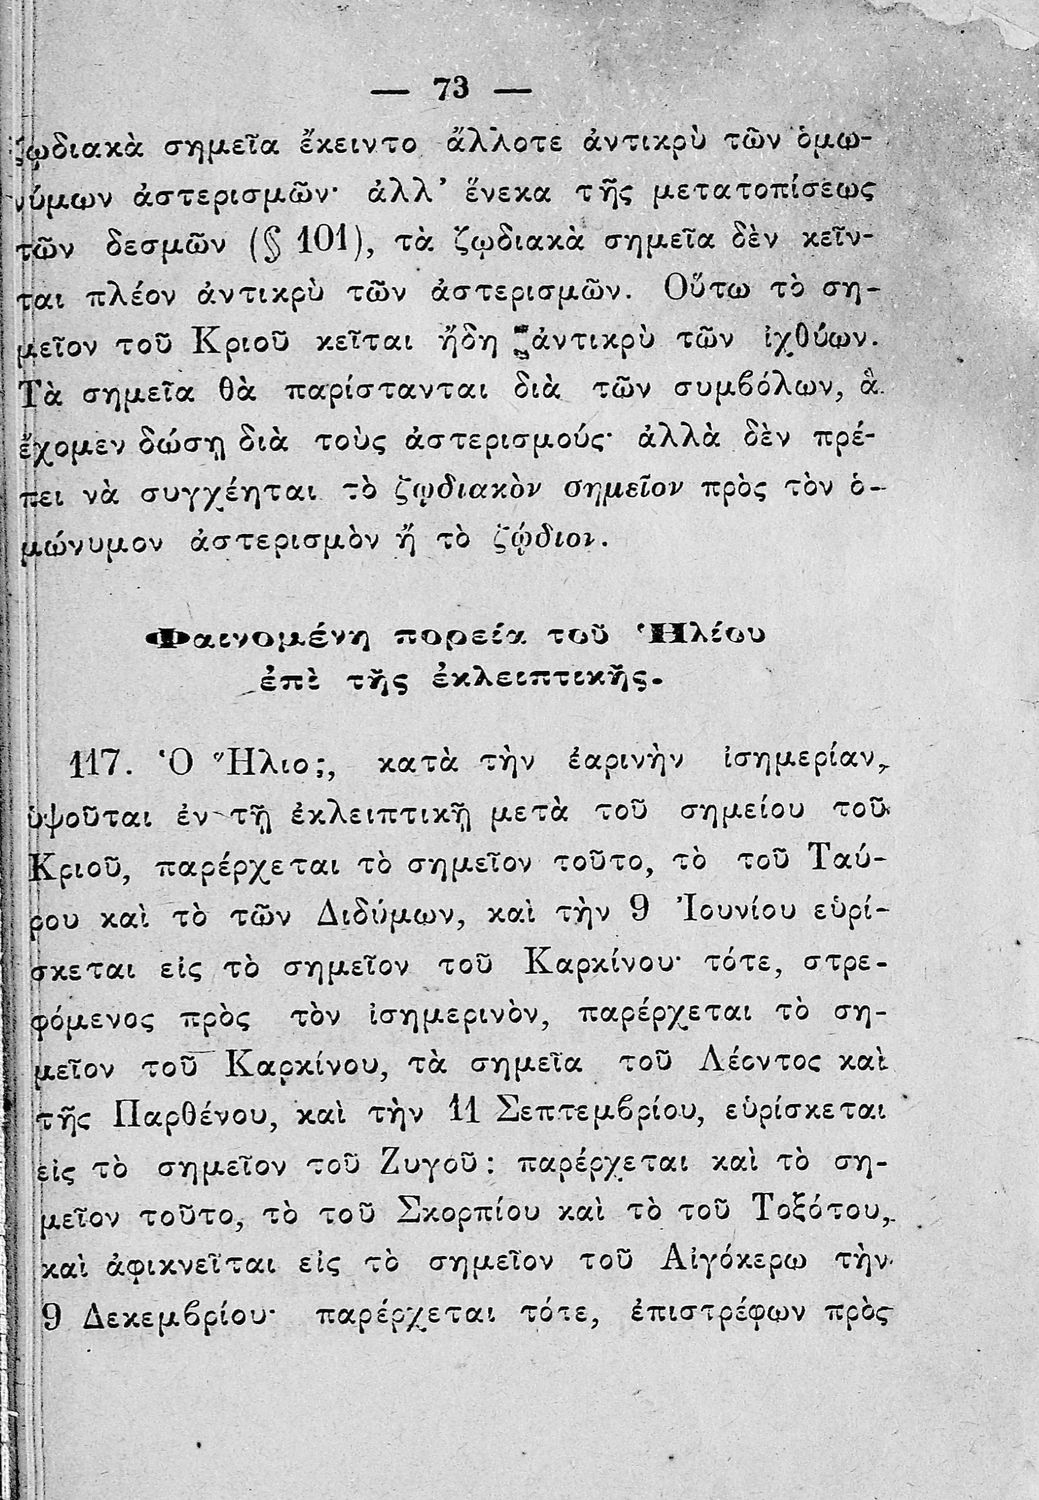 — 73 —
ζῳδιακὰ σημεῖα ἔκειντο ἄλλοτε ἀντικρὺ τῶν ὁμω-
νύμων ἀστερισμῶν· ἀλλ’ ἕνεκα τῆς μετατοπίσεως
τῶν δεσμῶν (§ 101), τὰ ζῳδιακὰ σημεῖα δὲν κεῖν-
ται πλέον ἀντικρὺ τῶν ἀστερισμῶν. Οὕτω τὸ ση-
μεῖον τοῦ Κριοῦ κεῖται ἤδη ἀντικρὺ τῶν ἰχθύων.
Τὰ σημεῖα θὰ παρίστανται διὰ τῶν συμβόλων, ἃ
ἔχομεν δώσῃ διὰ τοὺς ἀστερισμούς· ἀλλὰ δὲν πρέ-
πει νὰ συγχέηται τὸ ζῳδιακὸν σημεῖον πρὸς τὸν ὁ-
μώνυμον ἀστερισμὸν ἢ τὸ ζῴδιον.
Φαινομένη πορεία τοῦ Ἡλίου
ἐπὶ τῆς ἐκλειπτικῆς.
117. Ὁ Ἥλιος, κατὰ τὴν ἐαρινὴν ἰσημερίαν,
ὑψοῦται ἐν τῇ ἐκλειπτικῇ μετὰ τοῦ σημείου τοῦ
Κριοῦ, παρέρχεται τὸ σημεῖον τοῦτο, τὸ τοῦ Ταύ-
ρου καὶ τὸ τῶν Διδύμων, καὶ τὴν 9 Ἰουνίου εὑρί-
σκεται εἰς τὸ σημεῖον τοῦ Καρκίνου· τότε, στρε-
φόμενος πρὸς τὸν ἰσημερινὸν, παρέρχεται τὸ ση-
μεῖον τοῦ Καρκίνου, τὰ σημεῖα τοῦ Λέοντος καὶ
τῆς Παρθένου, καὶ τὴν 11 Σεπτεμβρίου, εὑρίσκεται
εἰς τὸ σημεῖον τοῦ Ζυγοῦ: παρέρχεται καὶ τὸ ση-
μεῖον τοῦτο, τὸ τοῦ Σκορπίου καὶ τὸ τοῦ Τοξότου,
καὶ ἀφικνεῖται εἰς τὸ σημεῖον τοῦ Αἰγόκερω τὴν
9 Δεκεμβρίου· παρέρχεται τότε, ἐπιστρέφων πρὸς